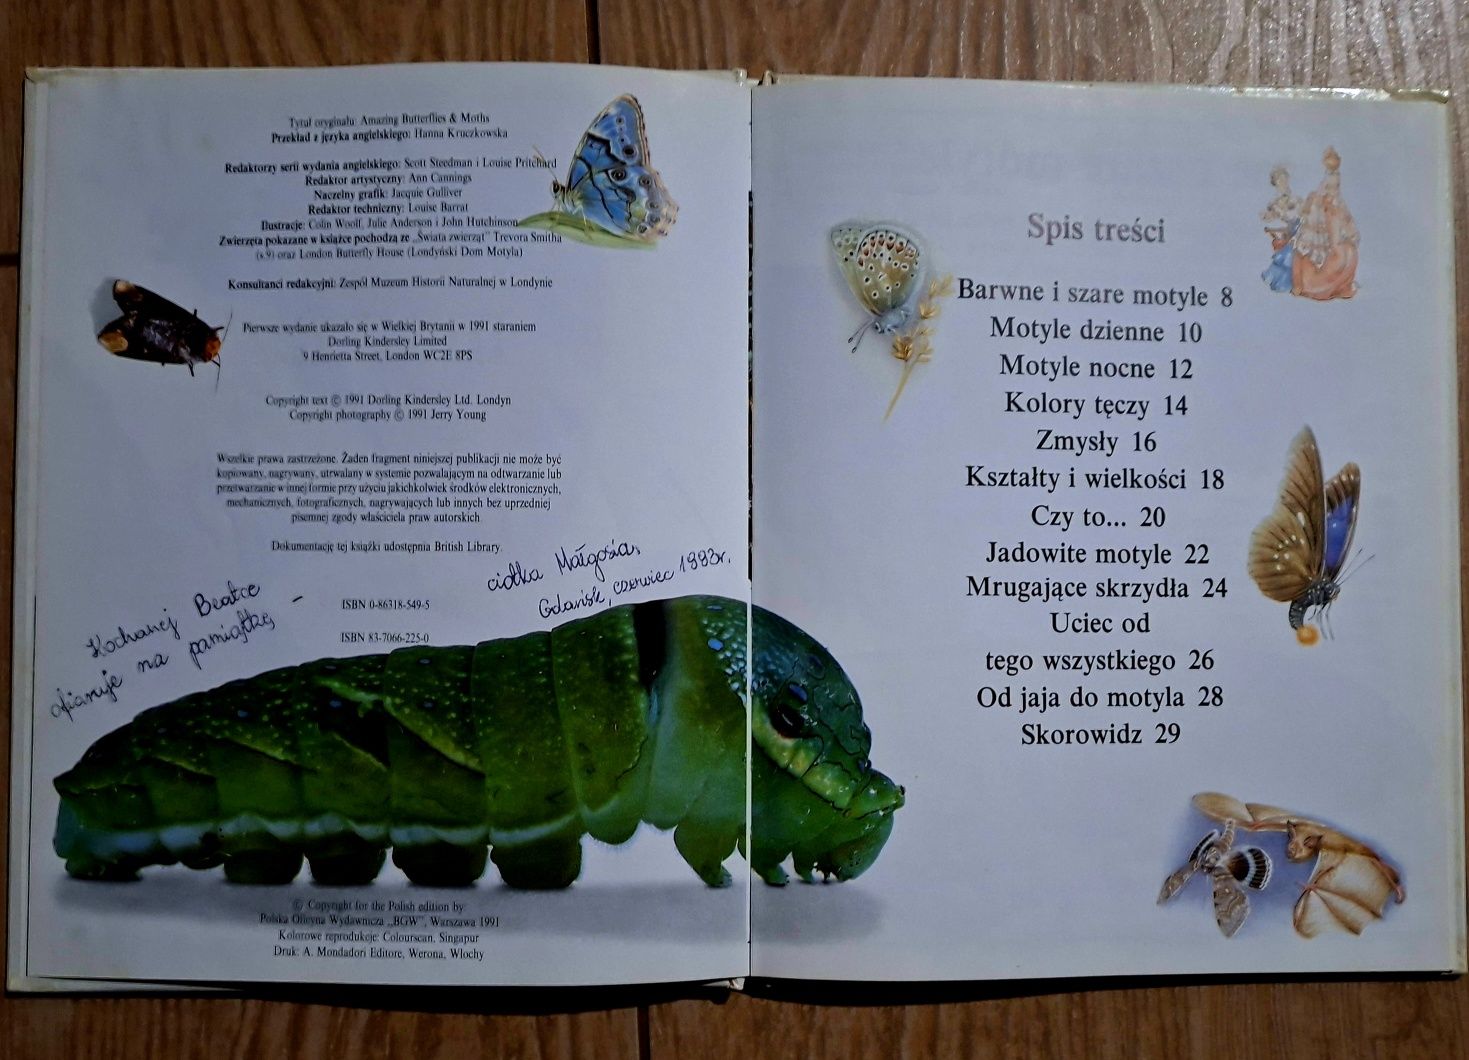 Tytuł oryginału: Amazing Butterflies & Moths
Przekład z języka angielskiego: Hanna Kruczkowska
Redaktorzy serii wydania angielskiego: Scott Steedman i Louise Pritchard
Redaktor artystyczny: Ann Cannings
Naczelny grafik: Jacquie Gulliver
Redaktor techniczny: Louise Barrat
Ilustracje: Colin Woolf, Julie Anderson i John Hutchinson
Zwierzęta pokazane w książce pochodzą ze „Świata zwierząt" Trevora Smitha
(s.9) oraz London Butterfly House (Londyński Dom Motyla)
Konsultanci redakcyjni: Zespół Muzeum Historii Naturalnej w Londynie
Pierwsze wydanie ukazało się w Wielkiej Brytanii w 1991 staraniem
Dorling Kindersley Limited
9 Henrietta Street, London WC2E 8PS
Copyright text © 1991 Dorling Kindersley Ltd. Londyn
Copyright photography © 1991 Jerry Young
Wszelkie prawa zastrzeżone. Żaden fragment niniejszej publikacji nie może być
kopiowany, nagrywany, utrwalany w systemie pozwalającym na odtwarzanie lub
przetwarzanie w innej formie przy użyciu jakichkolwiek środków elektronicznych,
mechanicznych, fotograficznych, nagrywających lub innych bez uprzedniej
pisemnej zgody właściciela praw autorskich.
Dokumentację tej książki udostępnia British Library.
Kochanej Beatce
ofiaruje na pamiątkę –
ciotka Małgosia,
Gdańsk, czerwiec 1993r.
ISBN 0-86318-549-5
ISBN 83-7066-225-0
© Copyright for the Polish edition by
Polska Oficyna Wydawnicza „BGW", Warszawa 1991
Kolorowe reprodukcje: Colourscan, Singapur
Druk: A. Mondadori Editore, Werona, Włochy
Spis treści
Barwne i szare motyle 8
Motyle dzienne 10
Motyle nocne 12
Kolory tęczy 14
Zmysły 16
Kształty i wielkości 18
Czy to... 20
Jadowite motyle 22
Mrugające skrzydła 24
Uciec od
tego wszystkiego 26
Od jaja do motyla 28
Skorowidz 29